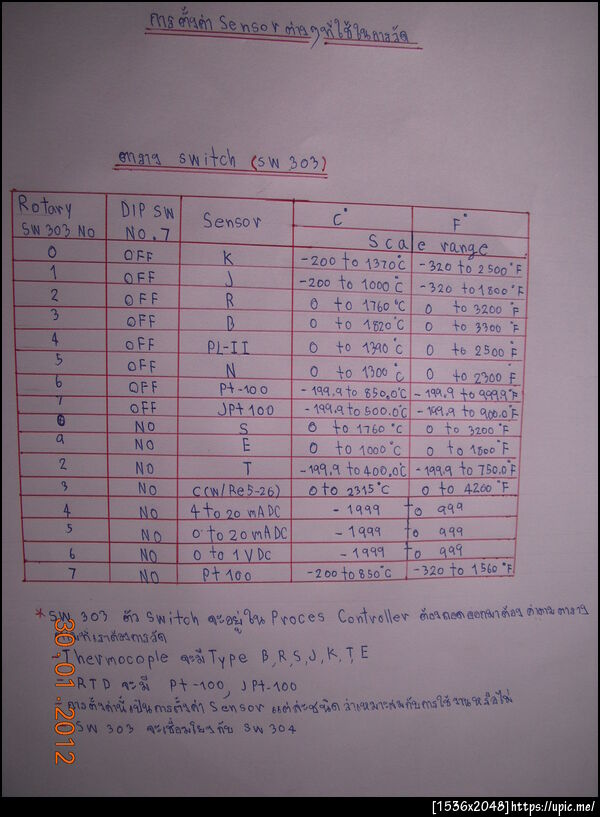 การตั้งค่า Sensor ต่างๆที่ใช้ในการวัด
ตาราง switch (SW 303)
Rotary SW 303 NO DIP SW NO.7 Sensor C° F°
Scale range
0 OFF K -200 to 1370°C -320 to 2500°F
1 OFF J -200 to 1000°C -320 to 1800°F
2 OFF R 0 to 1760°C 0 to 3200°F
3 OFF B 0 to 1820°C 0 to 3300°F
4 OFF PL-II 0 to 1390°C 0 to 2500°F
5 OFF N 0 to 1300°C 0 to 2300°F
6 OFF Pt-100 -199.9 to 850.0°C -199.9 to 999.9°F
7 OFF JPt100 -199.9 to 500.0°C -199.9 to 900.0°F
0 NO S 0 to 1760°C 0 to 3200°F
NO E 0 to 1000°C 0 to 1800°F
2 NO T -199.9 to 400.0°C -199.9 to 750.0°F
3 NO C(W/Re5-26) 0 to 2315°C 0 to 4200°F
4 NO 4 to 20 mADC -1999 to 999
5 NO 0 to 20 mADC -1999 to 999
6 NO 0 to 1 VDC -1999 to 999
7 NO Pt 100 -200 to 850°C -320 to 1560°F
* SW 303 ตัว switch จะอยู่ใน Proces Controller ต้องถอดออกมาต้อง ค่าตาม ตาราง
ที่เราต้องการวัด
Thermocople จะมี Type B,R,S,J,K,T,E
- RTD จะมี Pt-100, JPt-100
- การตั้งค่านี้เป็นการตั้งค่า Sensor แต่ล่ะชนิด ว่าเหมาะสมกับการใช้งานหรือไม่
SW 303 จะเชื่อมโยงกับ SW 304
30.01.2012
[1536x2048]https://upic.me/